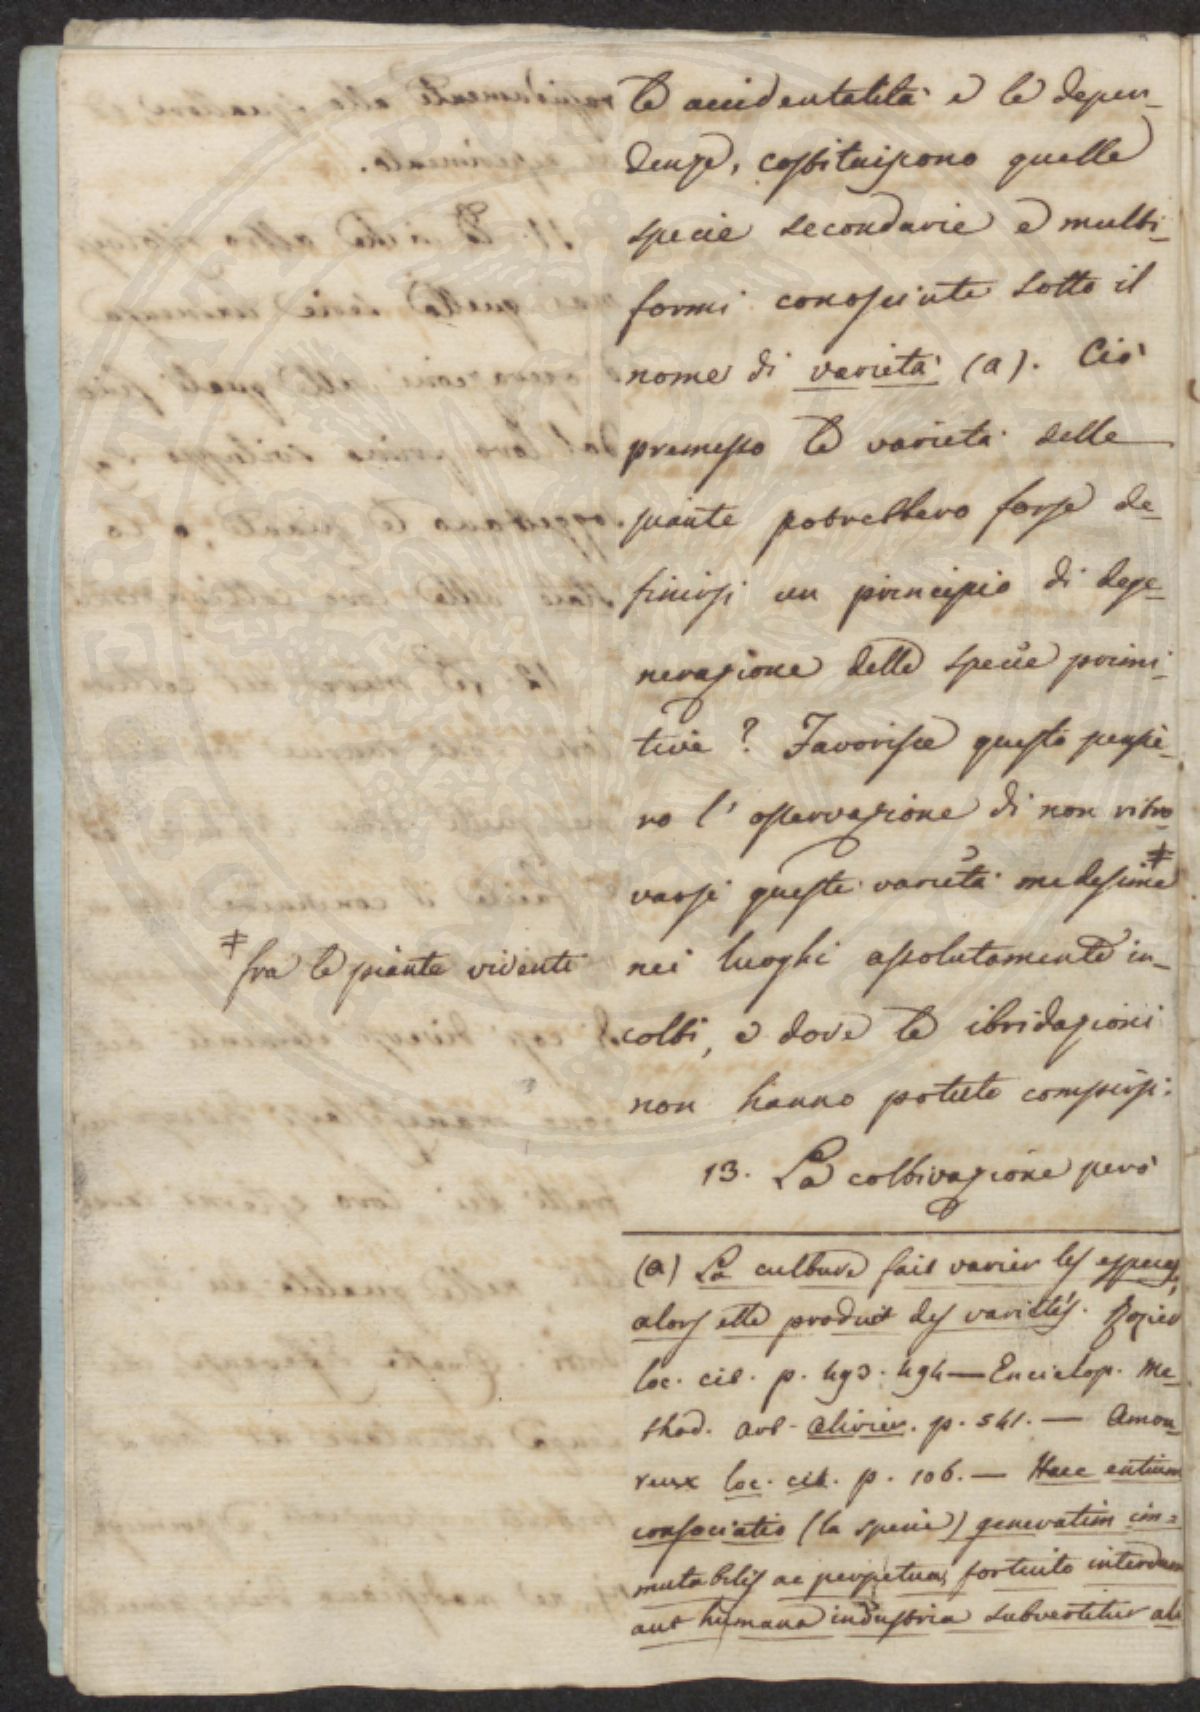 le accidentalità e le dipen-
denze, costituiscono quelle
specie secondarie e multi-
formi conosciute sotto il
nome di varietà (a). Ciò
premesso le varietà delle
piante potrebbero forse de-
finirsi un principio di dege-
nerazione delle specie primi-
tive? Favorisce questo pensie-
ro l'osservazione di non ritro-
varsi queste varietà medesime ‡
nei luoghi assolutamente in-
colti, e dove le ibridazioni
non hanno potuto compiersi.
‡ fra le piante viventi
13. La coltivazione però
(a) La culture fait varier les especes,
alors elle produit des variétés. Rozier
loc. cit. p. 493. 494 — Enciclop. Me-
thod. art. Olivier. p. 541. — Amou-
reux loc. cit. p. 106. — Haec entium
consociatio (la specie) generatim im=
mutabilis ac perpetua, fortuito interdum
aut humana industria subvertitur ali